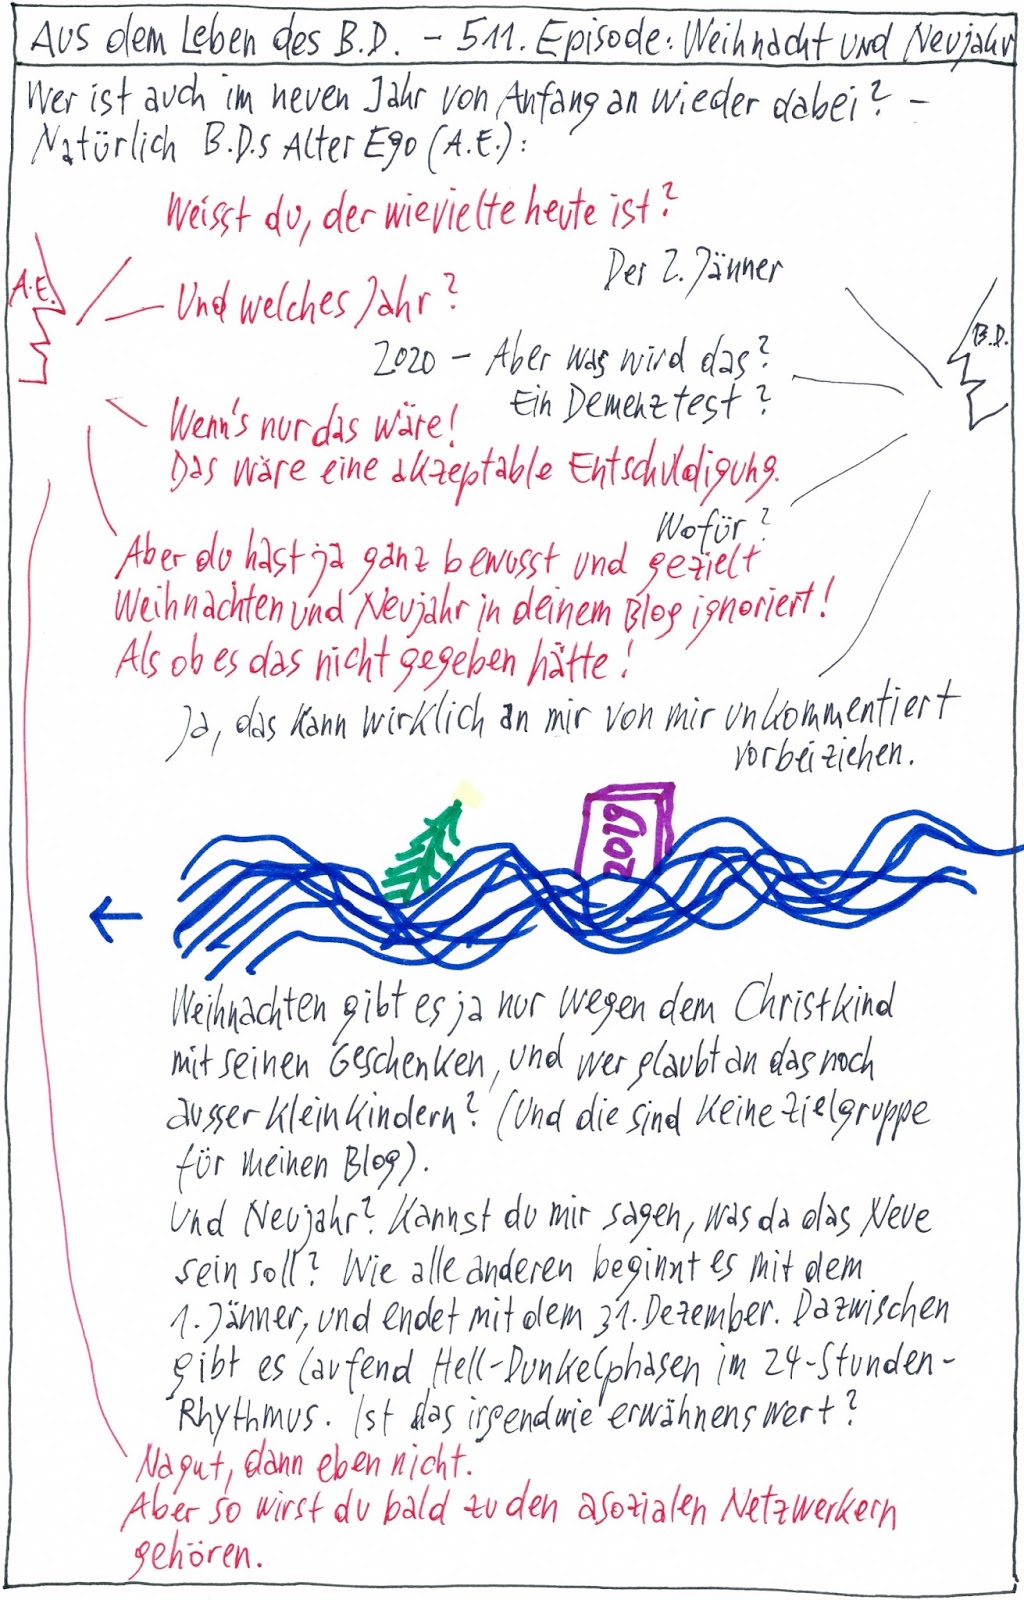 Aus dem Leben des B.D. - 511. Episode: Weihnacht und Neujahr
Wer ist auch im neuen Jahr von Anfang an wieder dabei? -
Natürlich B.D.s Alter Ego (A.E.):
Weisst du, der wievielte heute ist?
Der 2. Jänner
A.E.
Und welches Jahr?
B.D.
2020 - Aber was wird das?
Ein Demenztest?
Wenn's nur das wäre!
Das wäre eine akzeptable Entschuldigung.
Wofür?
Aber du hast ja ganz bewusst und gezielt
Weihnachten und Neujahr in deinem Blog ignoriert!
Als ob es das nicht gegeben hätte!
Ja, das kann wirklich an mir von mir unkommentiert
vorbeiziehen.
2019
Weihnachten gibt es ja nur wegen dem Christkind
mit seinen Geschenken, und wer glaubt an das noch
ausser Kleinkindern? (Und die sind keine Zielgruppe
für meinen Blog).
Und Neujahr? Kannst du mir sagen, was da das Neue
sein soll? Wie alle anderen beginnt es mit dem
1. Jänner, und endet mit dem 31. Dezember. Dazwischen
gibt es laufend Hell-Dunkelphasen im 24-Stunden-
Rhythmus. Ist das irgendwie erwähnenswert?
Na gut, dann eben nicht.
Aber so wirst du bald zu den asozialen Netzwerkern
gehören.